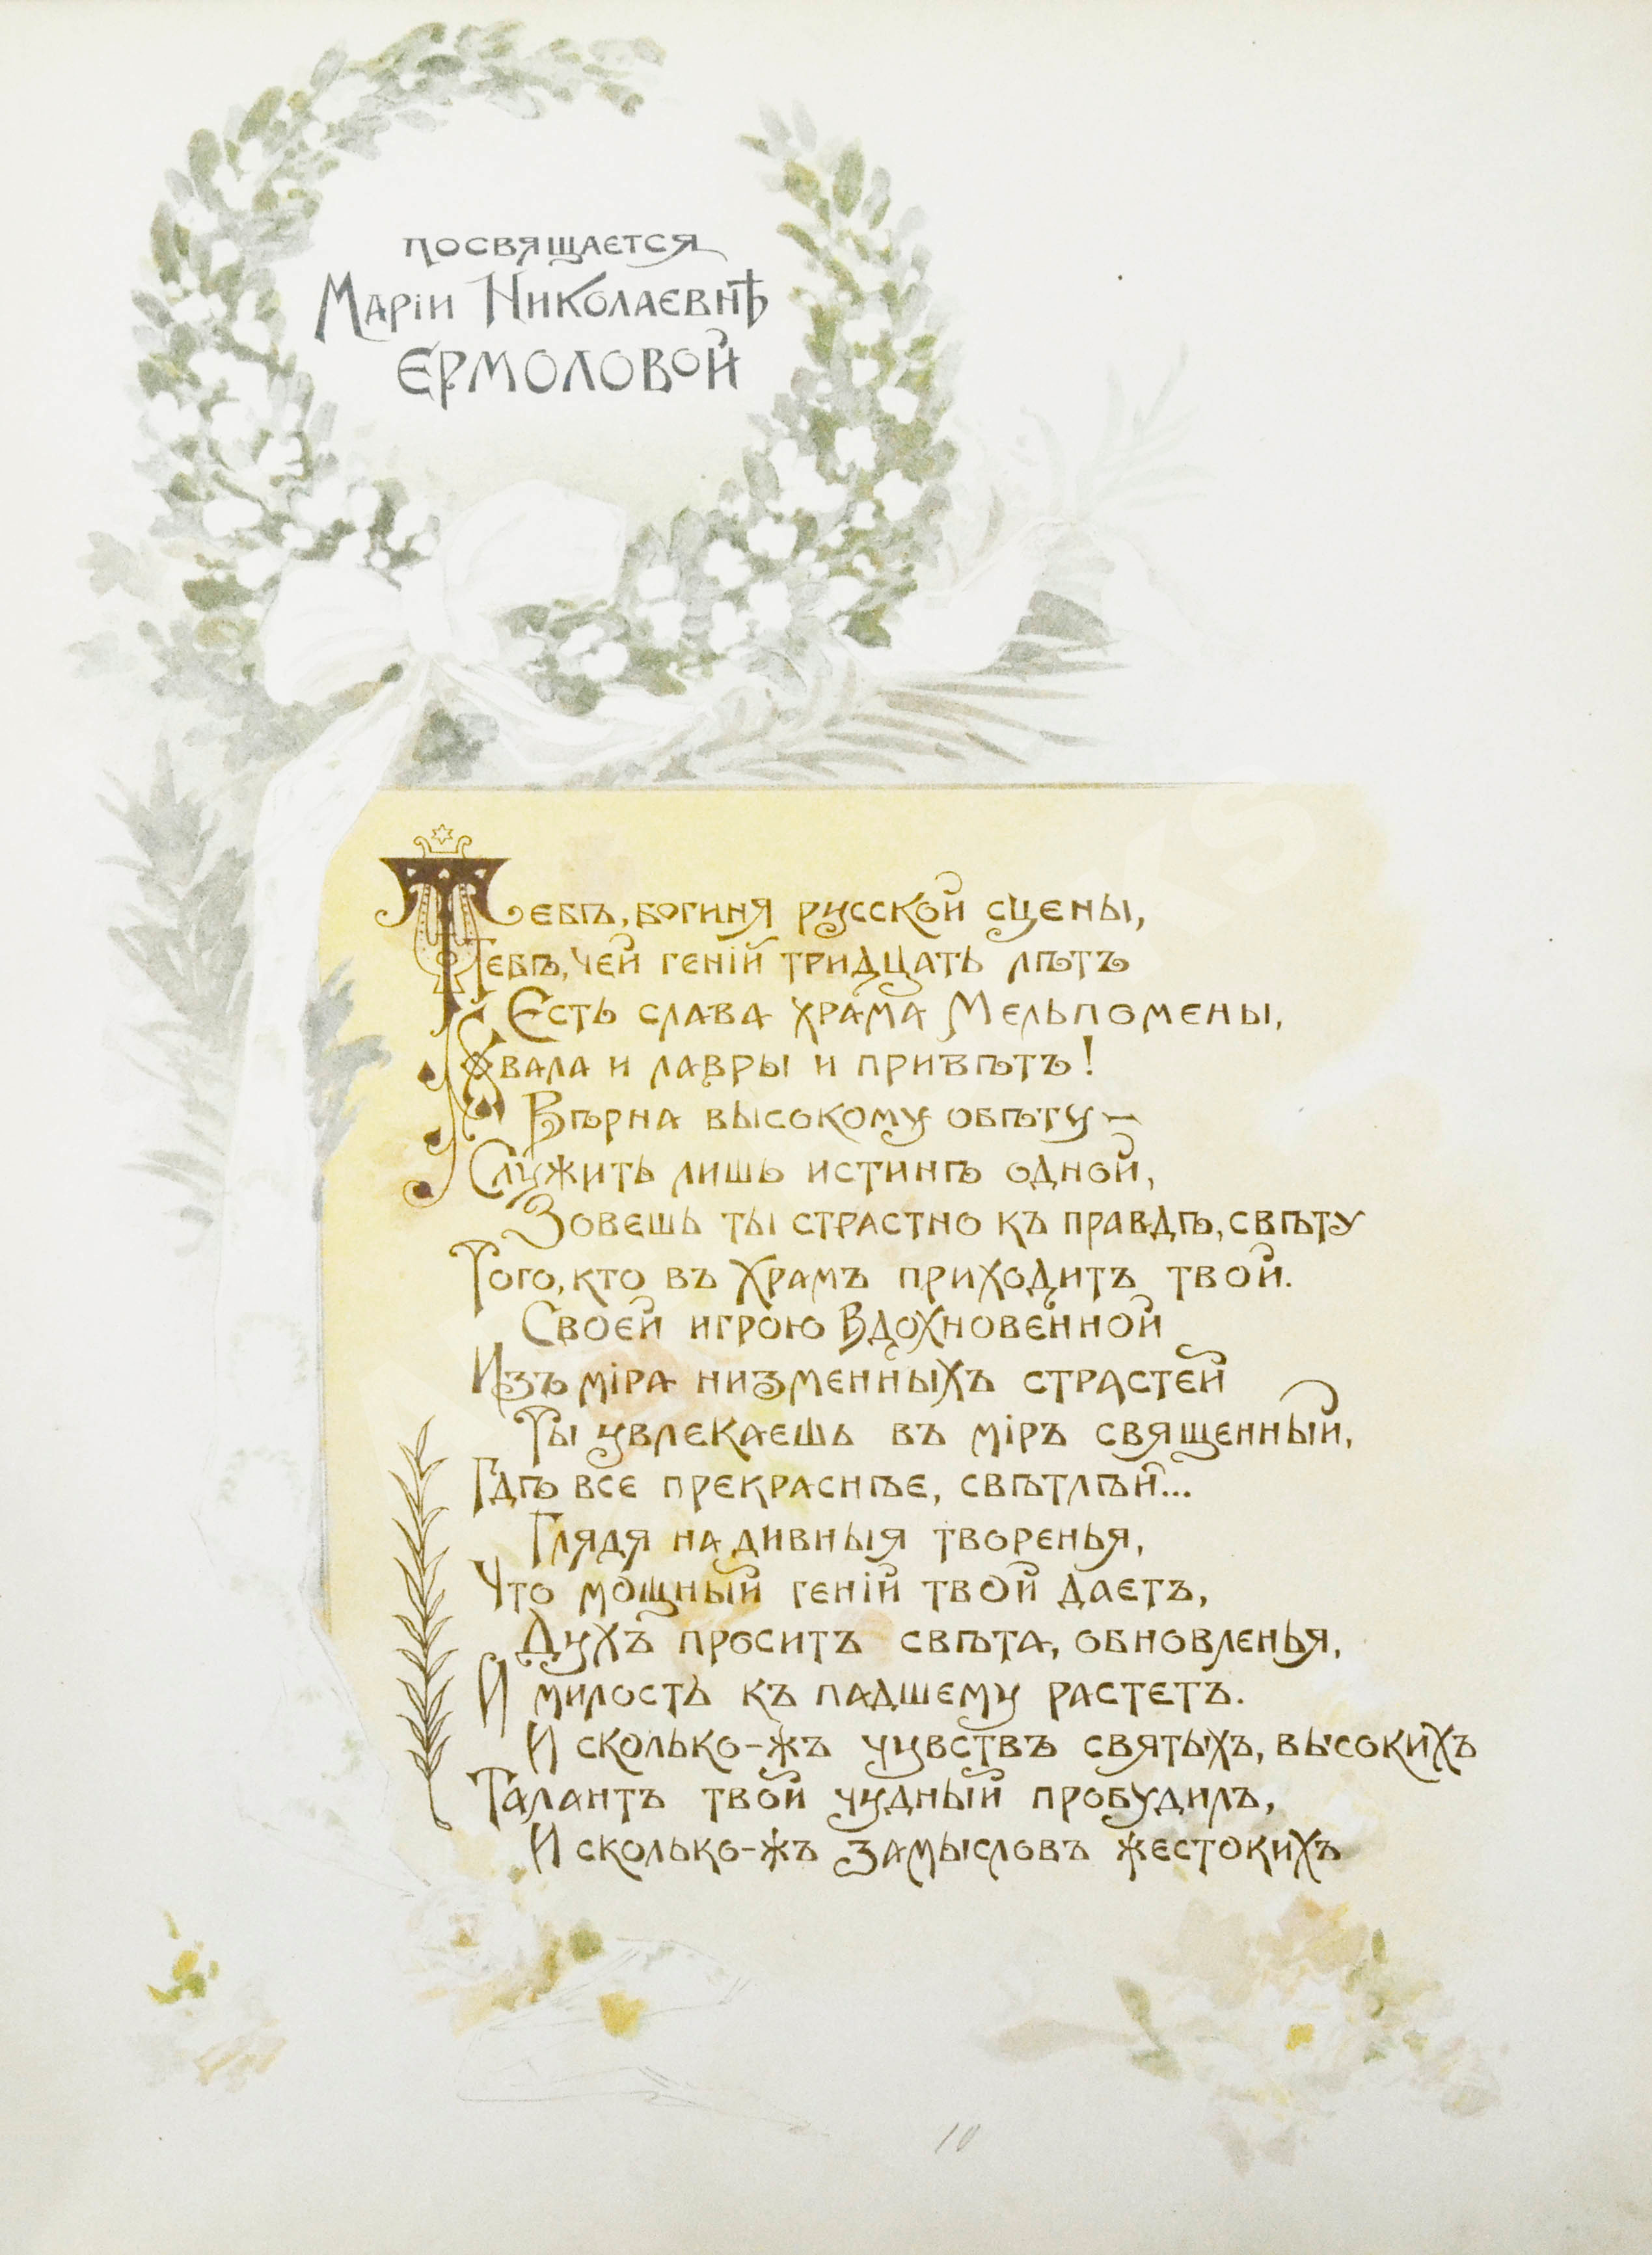 посвящается
Маріи Николаевнѣ
Ермоловой
Тебѣ, богиня русской сцены,
Тебѣ, чей геній тридцать лѣтъ
Есть слава храма Мельпомены,
Хвала и лавры и привѣтъ!
Вѣрна высокому обѣту —
Служить лишь истинѣ одной,
Зовешь ты страстно къ правдѣ, свѣту
Того, кто въ Храмъ приходитъ твой.
Своей игрою Вдохновенной
Изъ міра низменныхъ страстей
Ты увлекаешь въ міръ священный,
Гдѣ все прекраснѣе, свѣтлѣй...
Глядя на дивныя творенья,
Что мощный геній твой даетъ,
Духъ проситъ свѣта, обновленья,
И милость къ падшему растетъ.
И сколько-жъ чувствъ святыхъ, высокихъ
Талантъ твой чудный пробудилъ,
И сколько-жъ замысловъ жестокихъ
10